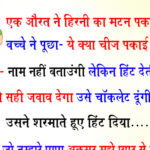 एक औरत ने हिरनी का मटन पक
बच्चे ने पूछा- ये क्या चीज पकाई
- नाम नहीं बताउंगी लेकिन हिंट दे
सही जवाब देगा उसे चॉकलेट दूंगी
उसने शरमाते हूए हिंट दिया....